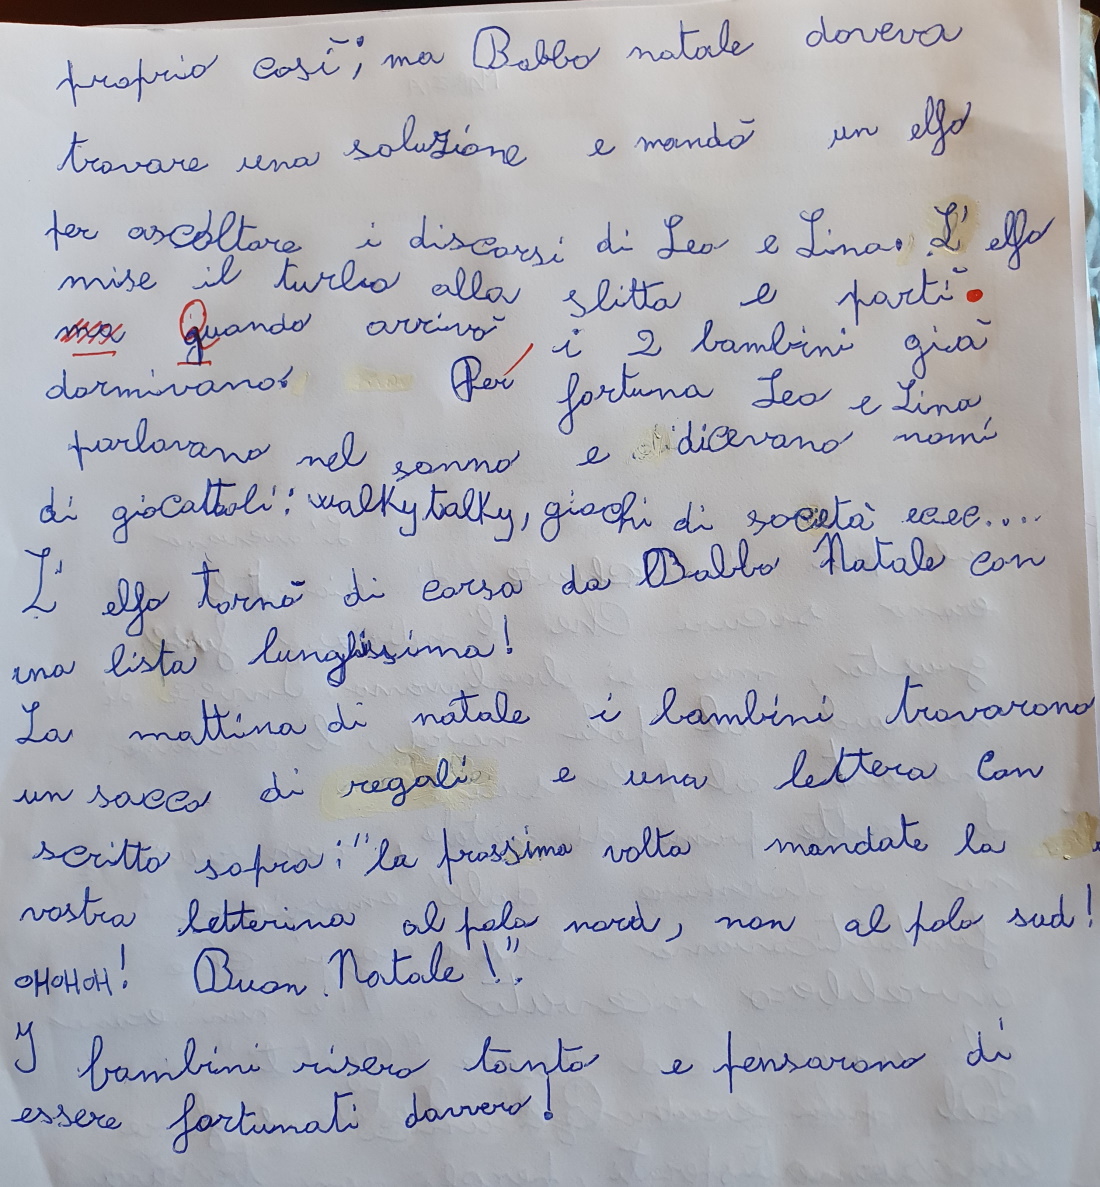 proprio così; ma Babbo natale doveva
trovare una soluzione e mandò un elfo
per ascoltare i discorsi di Leo e Lina. L' elfo
mise il turbo alla slitta e partì.
ma quando arrivò i 2 bambini già
dormivano. Per fortuna Leo e Lina
parlavano nel sonno e dicevano nomi
di giocattoli: walky talky, giochi di società ecc....
L' elfo tornò di corsa da Babbo Natale con
una lista lunghissima!
La mattina di natale i bambini trovarono
un sacco di regali e una lettera con
scritto sopra: "la prossima volta mandate la
vostra letterina al polo nord, non al polo sud!
OHOHOH! Buon Natale!".
I bambini risero tanto e pensarono di
essere fortunati davvero!